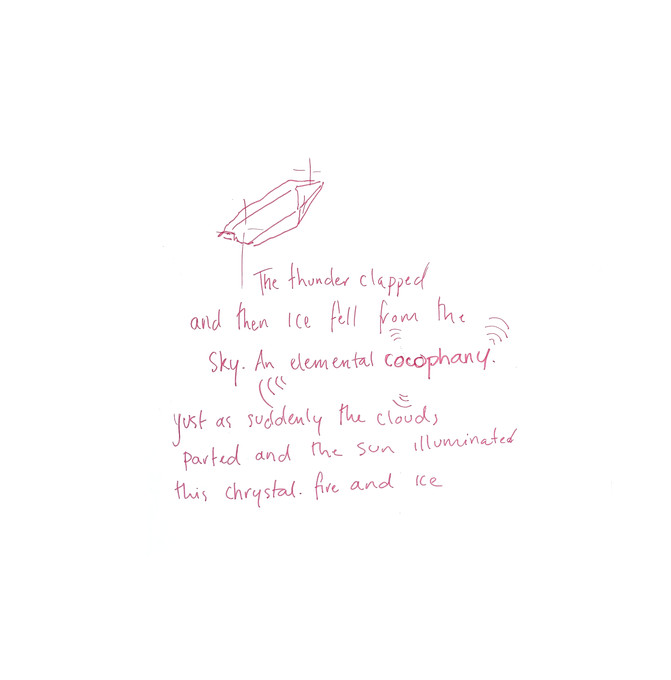 The thunder clapped
and then Ice fell from the
Sky. An elemental cocophany.
Just as suddenly the clouds
parted and the sun illuminated
this chrystal. fire and Ice